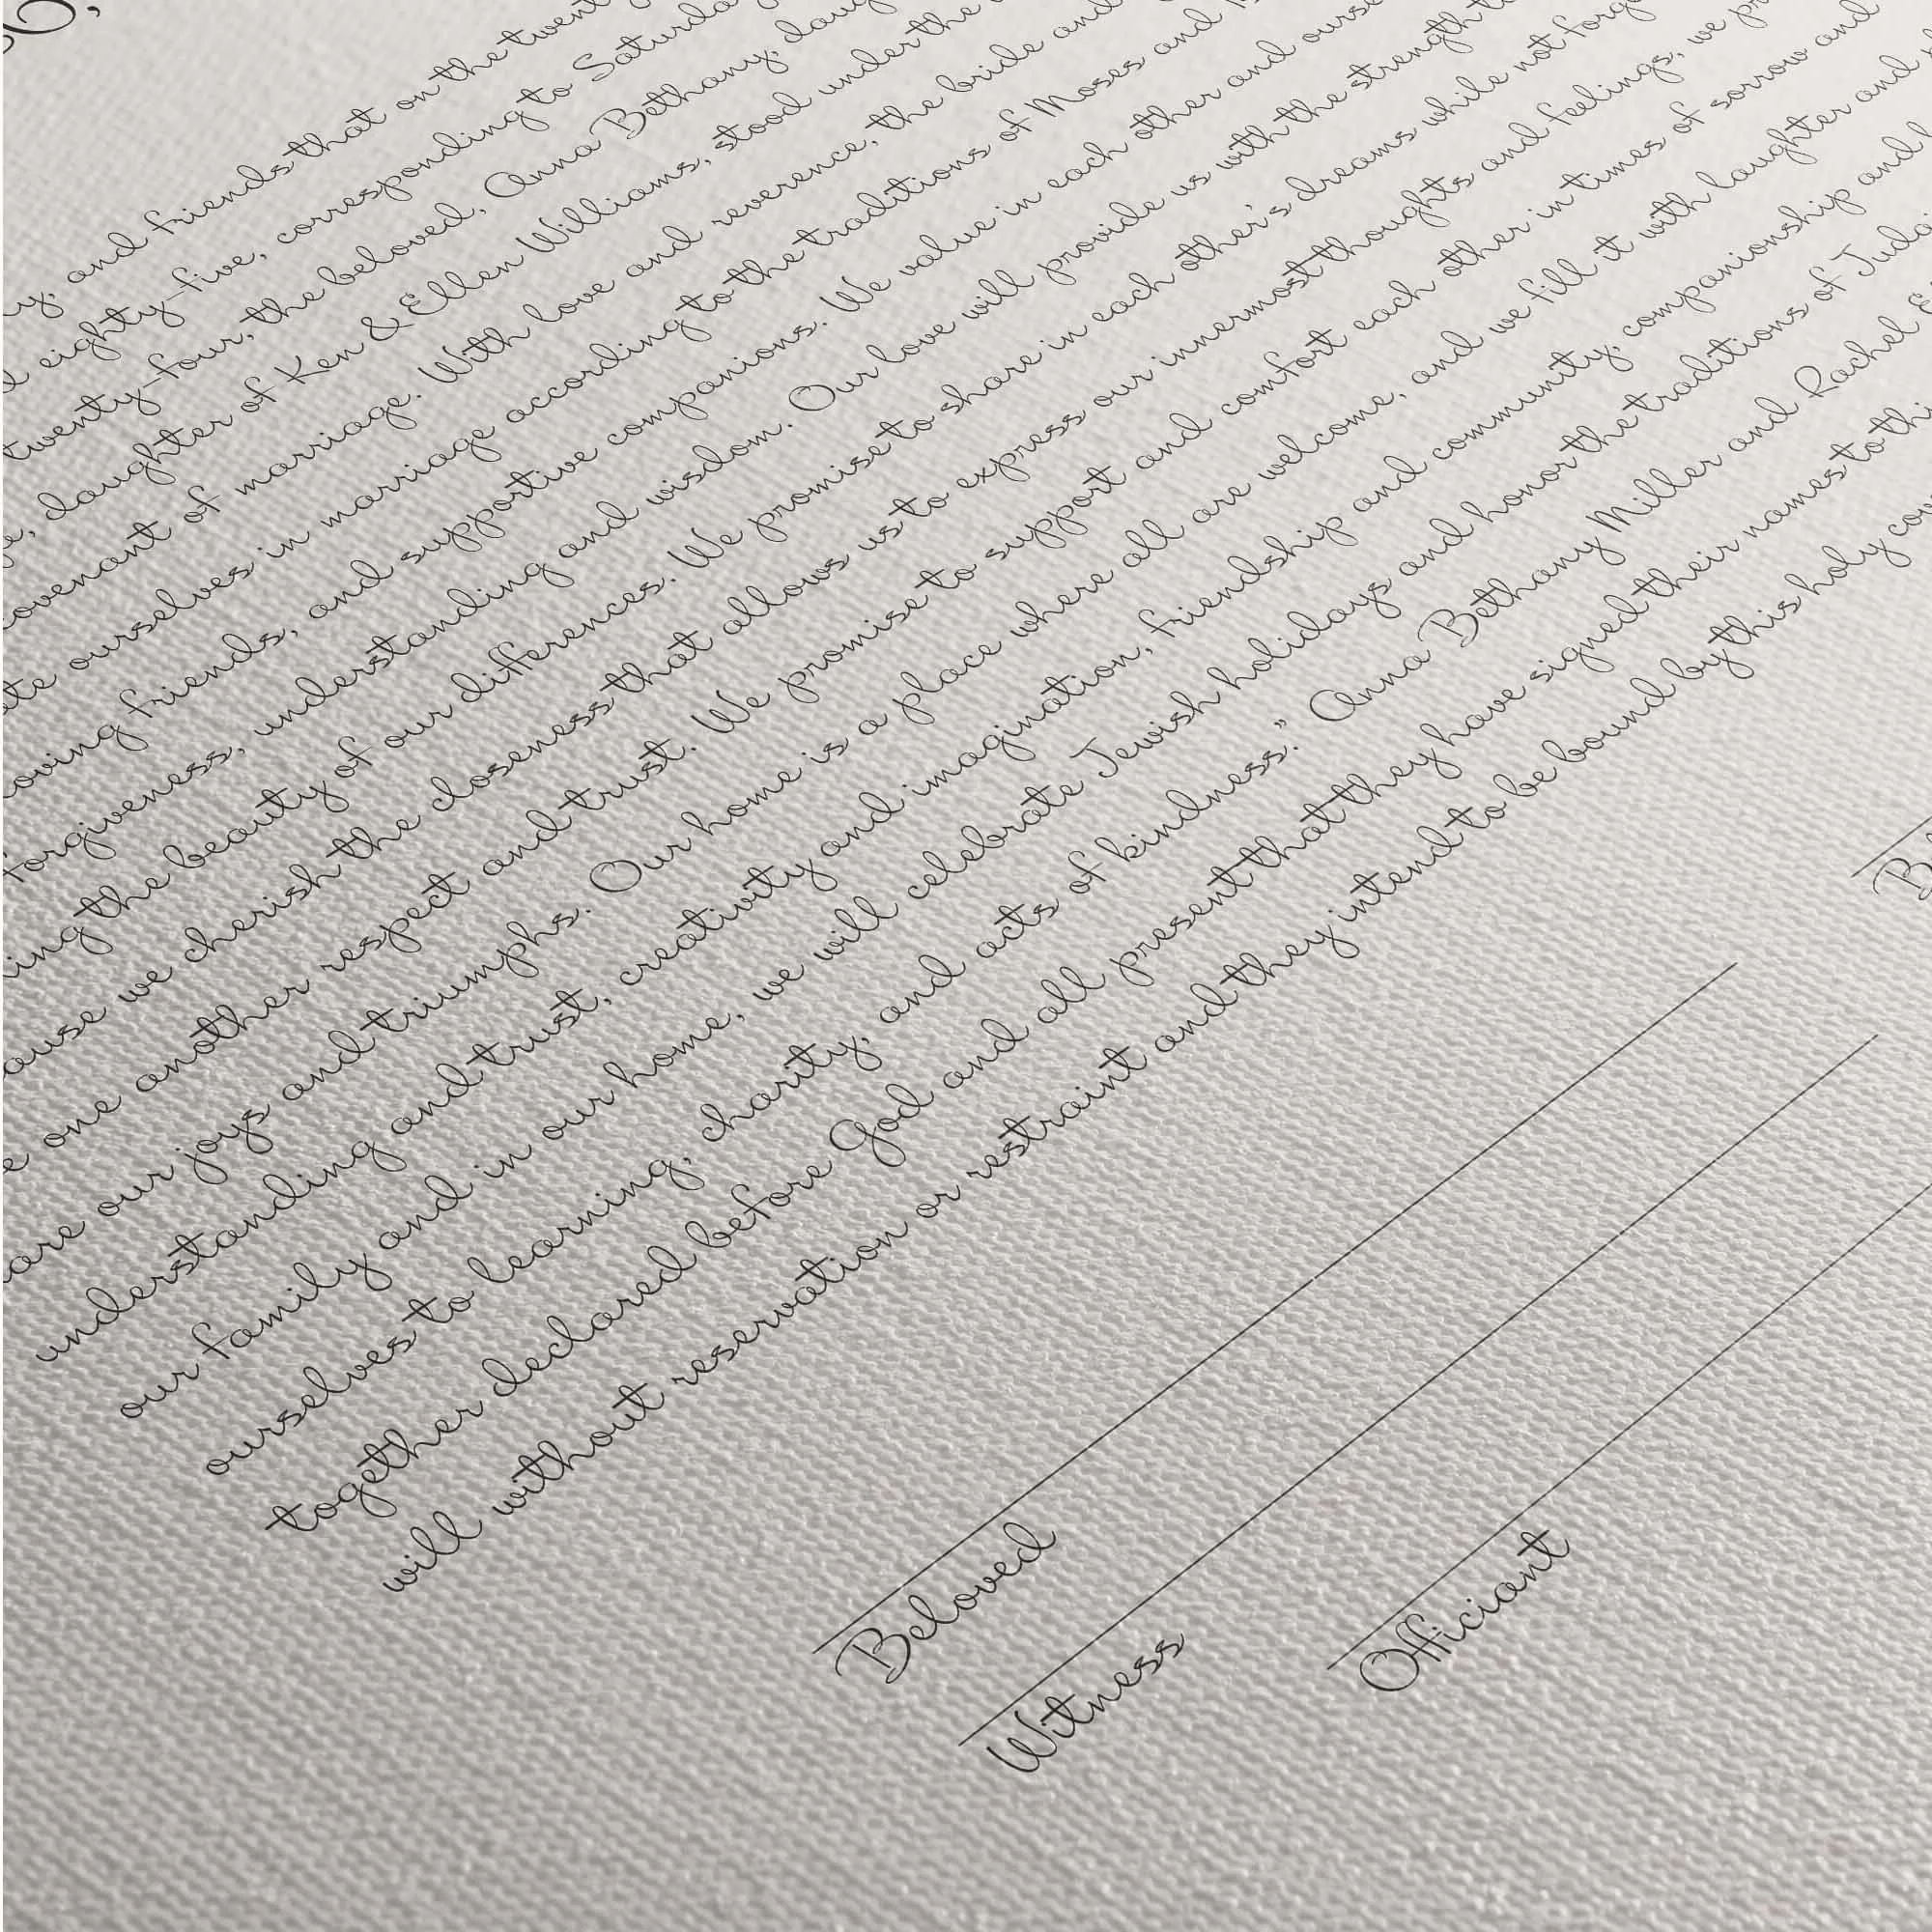 and friends that on the
eighty-five, corresponding to
twenty-four, the beloved, Anna Bethany,
daughter of Ken & Ellen Williams, stood under the
covenant of marriage. With love and reverence, the bride and
ourselves in marriage according to the traditions of Moses and
loving friends, and supportive companions. We value in each other and
forgiveness, understanding and wisdom. Our love will provide us with the strength
the beauty of our differences. We promise to share in each other's dreams while not
we cherish the closeness that allows us to express our innermost thoughts and feelings, we
one another respect and trust. We promise to support and comfort each other in times of sorrow and
our joys and triumphs. Our home is a place where all are welcome, and we fill it with laughter and
understanding and trust, creativity and imagination, friendship and community, companionship and
our family and in our home, we will celebrate Jewish holidays and honor the traditions of
ourselves to learning, charity, and acts of kindness." Anna Bethany Miller and Rachel
together declared before God and all present that they have signed their names to
will without reservation or restraint and they intend to be bound by this holy
Beloved
Witness
Officiant